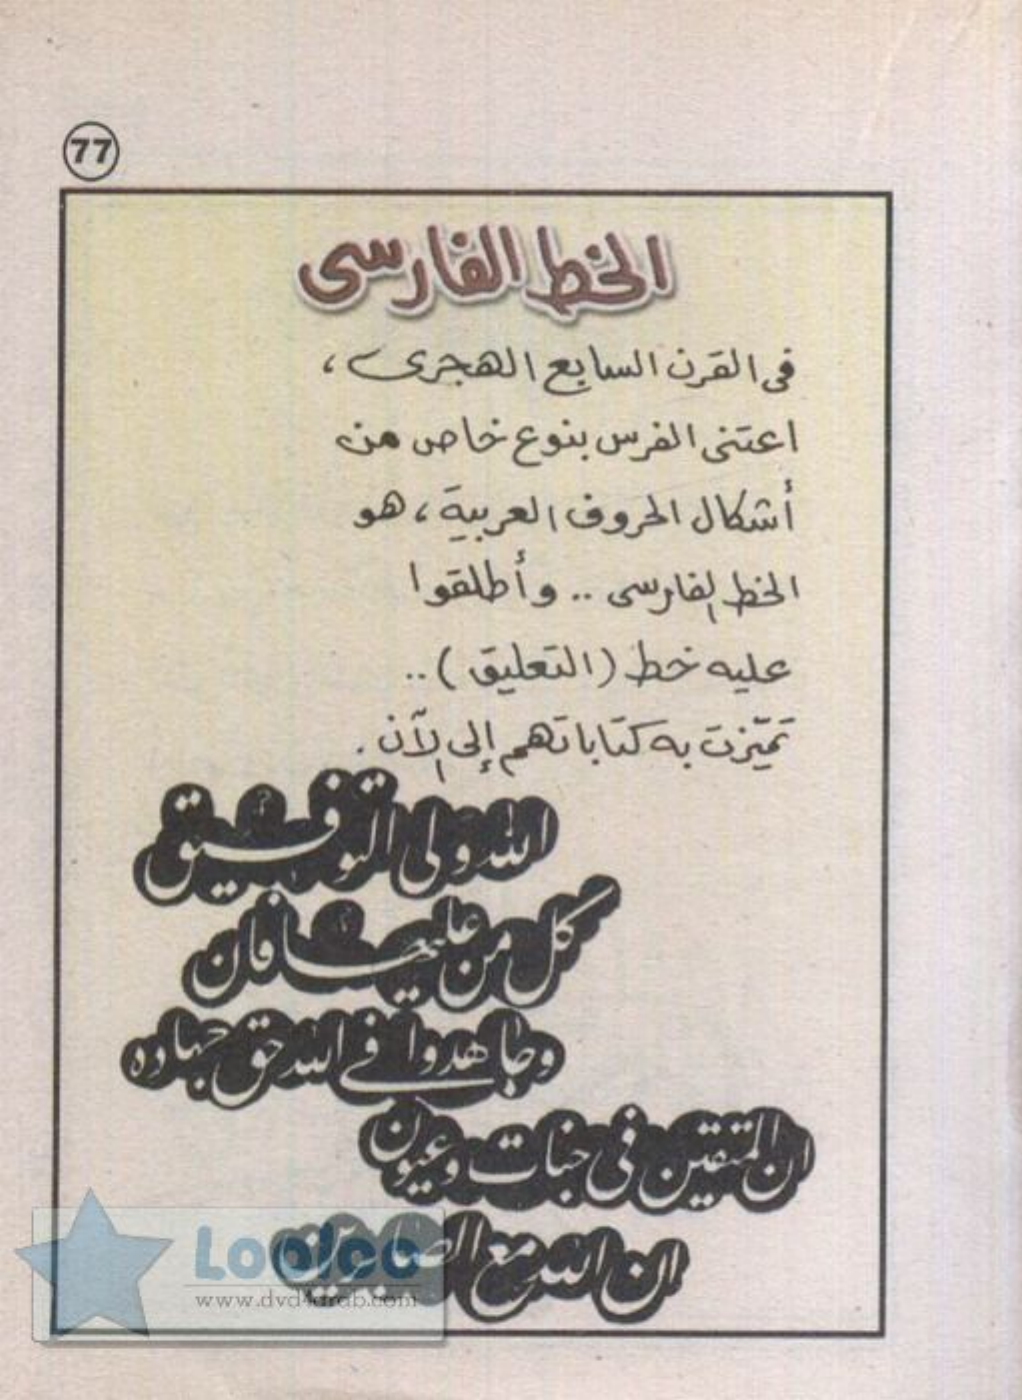 77
الخط الفارسى
فى القرن السابع الهجرى ،
اعتنى الفرس بنوع خاص من
أشكال الحروف العربية ، هو
الخط الفارسى .. وأطلقوا
عليه خط ( التعليق ) ..
تميّزت به كتاباتهم إلى الآن .
الله ولى التوفيق
كل من عليها فان
وجاهدوا في الله حق جهاده
ان المتقين فى جنات وعيون
ان الله مع الصابرين
Looloo
www.dvd4arab.com